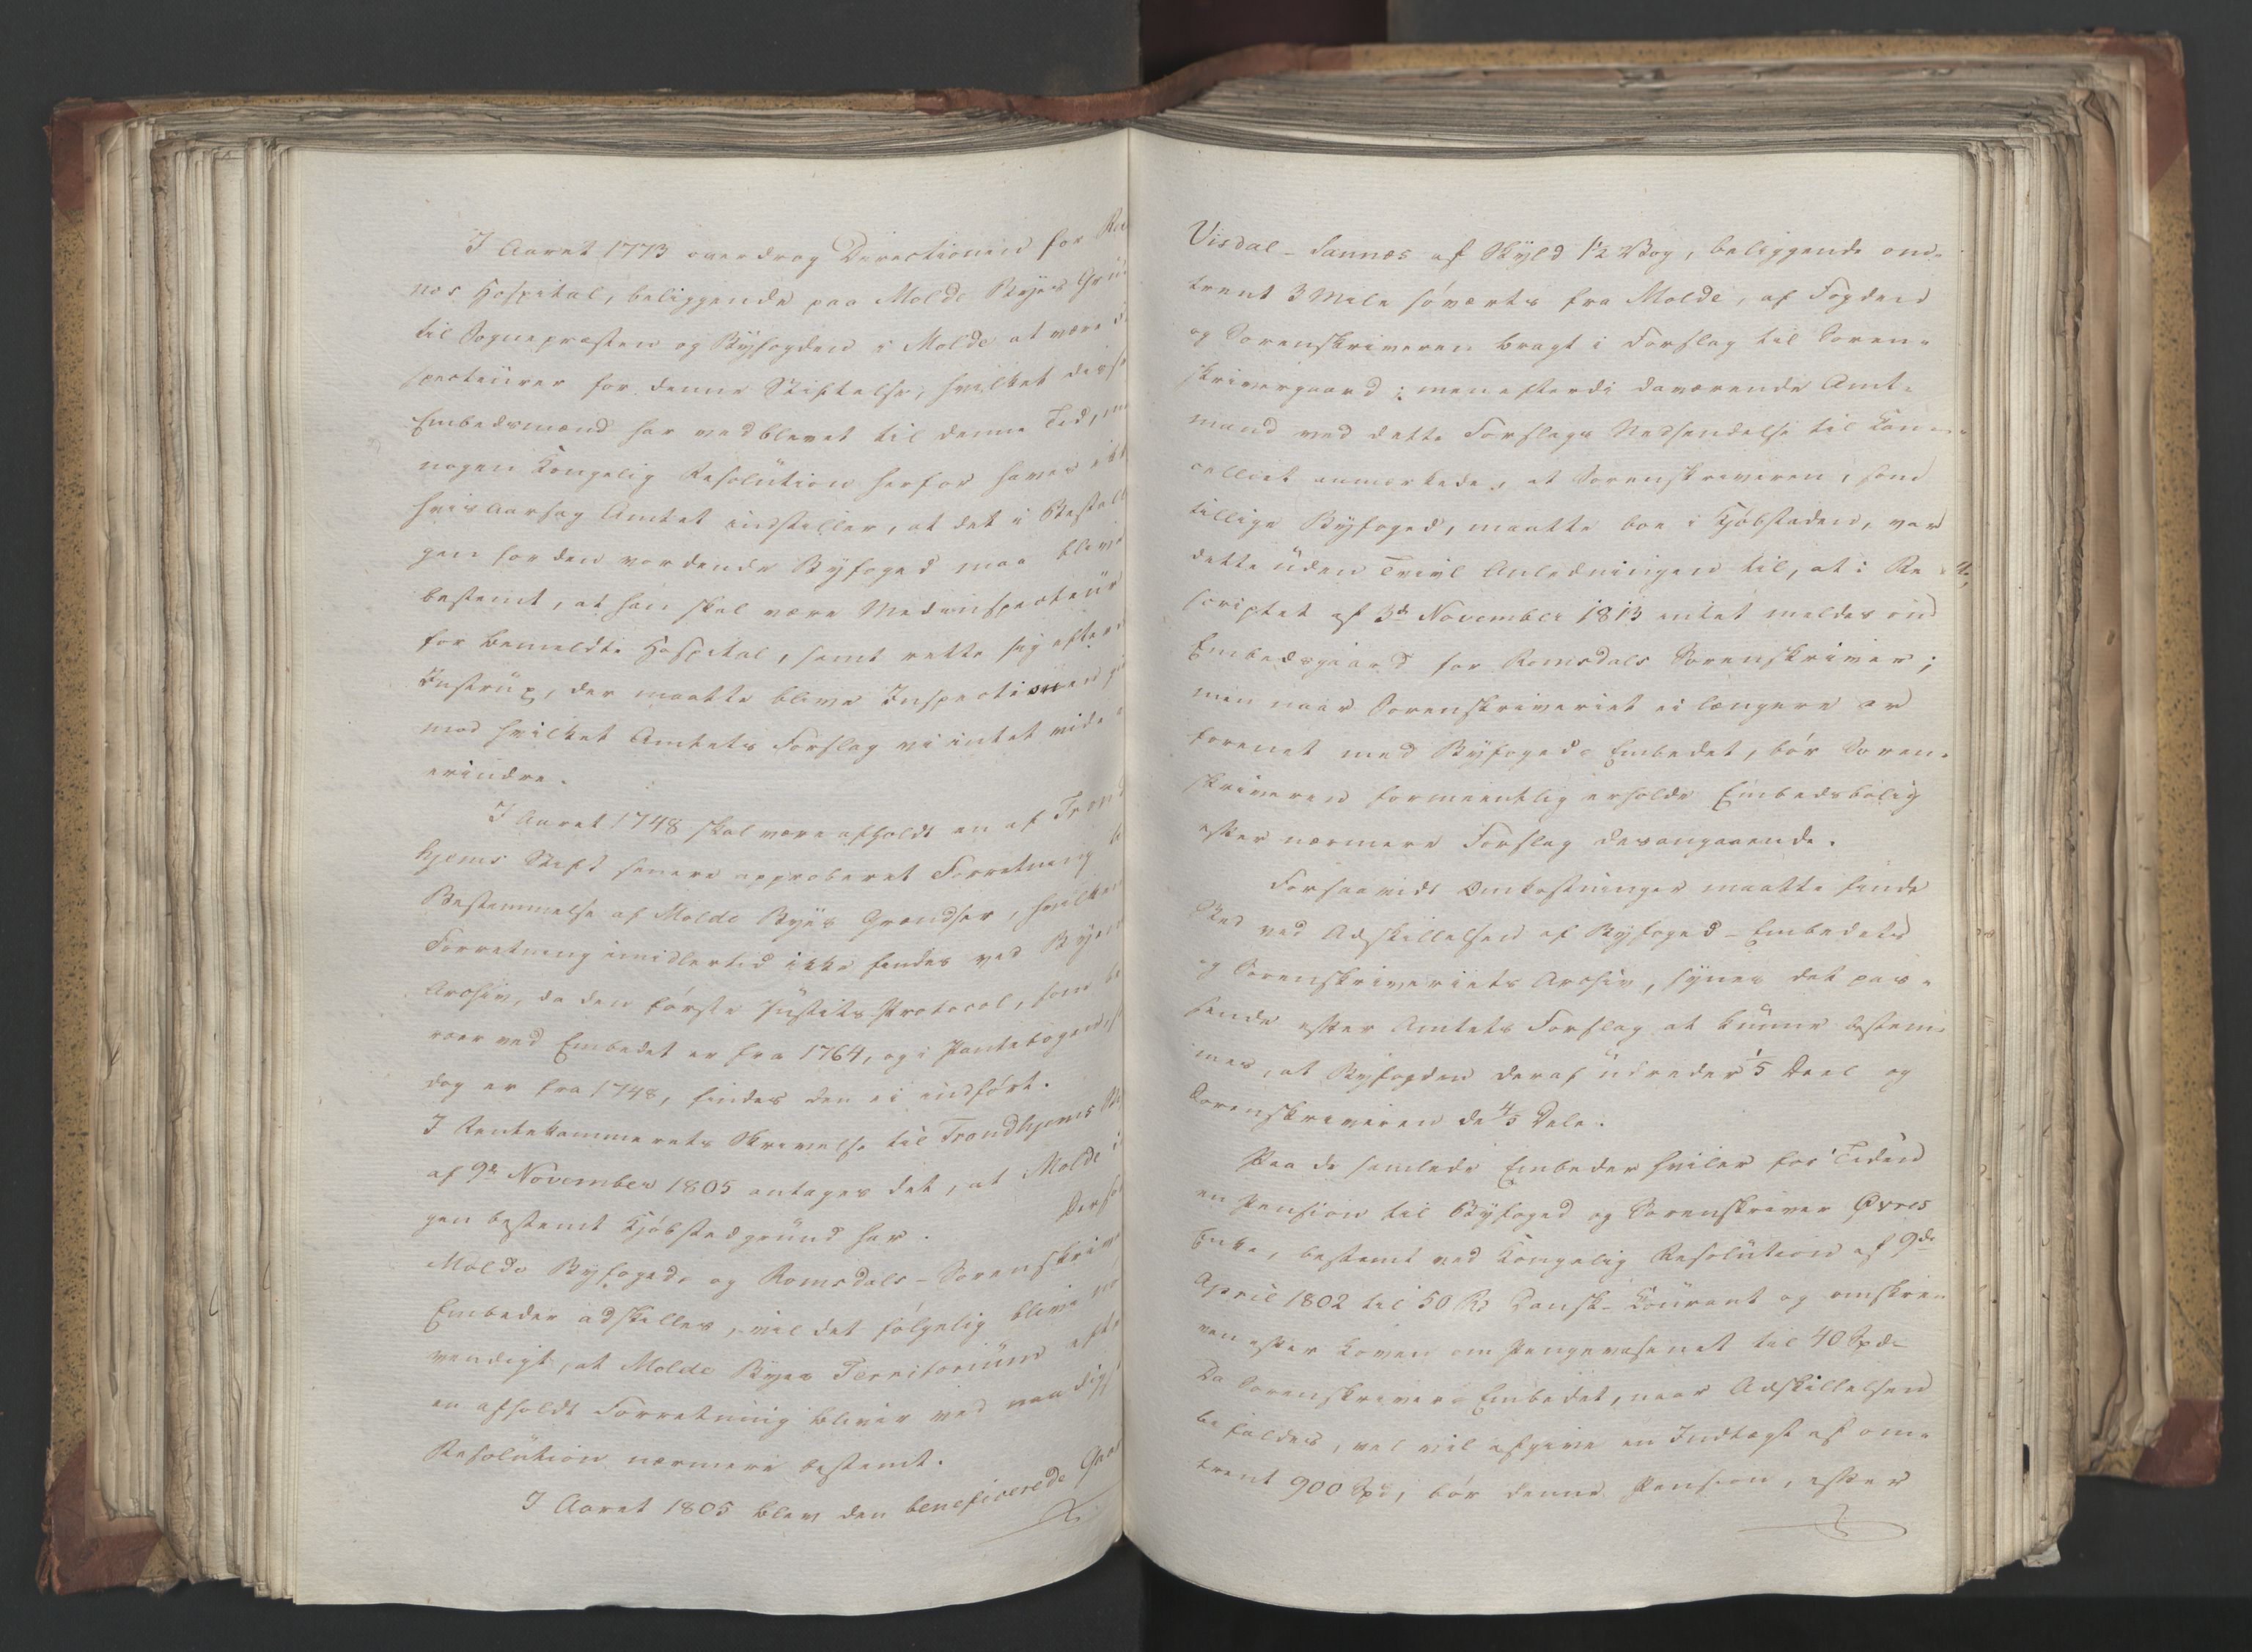 I Aaret 1773 overdrog Directionen for Re
næs Hospital, beliggende paa Molde Byes Grü
til Sognepræsten og Byfogden i Molde at være
specteürer for denne Stiftelse, hvilket disse
Embedsmænd har vedblevet til denne Tid,
nogen Kongelig Resolütion herfor haves ikk
hvisaarsag Amtet indstiller, at det i Bestall
gen for den vordende Byfoged maa blive
bestemt, at han skal være Medinspecteür
for bemeldte Hospital, samt rette sig efter
Instrüx, der maatte blive Inspectionen
mod hvilket Amtets Forslag vi intet vide
erindre.
I Aaret 1748 skal være afholdt en af Trond
hjems Stift senere approberet Forretning
Bestemmelse af Molde Byes Grændser, hvilken
Forretning imidlertid ikke findes ved Byens
Archiv, da den første Jüstits-Protocol, som be
roer ved Embedet er fra 1764, og i Pantebogen,
dog er fra 1748, findes den ei indført.
I Rentekammerets Skrivelse til Trondhjems
af 9de November 1805 antages det, at Molde
gen bestemt Kjøbstedgründ har. Derso
Molde Byfogeds og Romsdals-Sorenskrive
Embeder adskilles, vil det følgelig blive
vendigt, at Molde Byes Territoriüm efte
en afholdt Forretning bliver ved naadigst
Resolütion nærmere bestemt.
I Aaret 1805 blev den beneficerede Gaar
Visdal-Sannes af Skyld 1½ Vog, beliggende om-
trent 3 Mile søværts fra Molde, af Fogden
og Sorenskriveren bragt i Forslag til Soren-
skrivergaard; men efterdi daværende Amt-
mand ved dette Forslags Nedsendelse til Can-
celliet anmærkede, at Sorenskriveren, som
tillige Byfoged, maatte boe i Kjøbstaden, var
dette üden Tvivl Anledningen til, at i Re-
scriptet af 3de November 1813 intet meldes om
Embedsgaard for Romsdals Sorenskriver;
men naar Sorenskriveriet ei længere er
forenet med Byfoged-Embedet, bør Soren-
skriveren formeentlig erholde Embedsbolig
efter nærmere Forslag desangaaende.
Forsaavidt Omkostninger maatte finde
Sted ved Adskillelsen af Byfoged-Embedets
og Sorenskriveriets Archiv, synes det pas-
sende efter Amtets Forslag at künne bestem-
mes, at Byfogden deraf üdreder 1/5 Deel og
Sorenskriveren de 4/5 Dele.
Paa de samlede Embeder hviler for Tiden
en Pension til Byfoged og Sorenskriver Øvres
Enke, bestemt ved Kongelig Resolütion af 9de
April 1802 til 50 Rd Dansk-Coürant og omskre
ven efter Loven om Pengevæsenet til 40 Spd-
Da Sorenskriver-Embedet, naar Adskillelsen
befaldes, vel vil afgive en Indtægt af om-
trent 900 Spd, bør denne Pension, efter